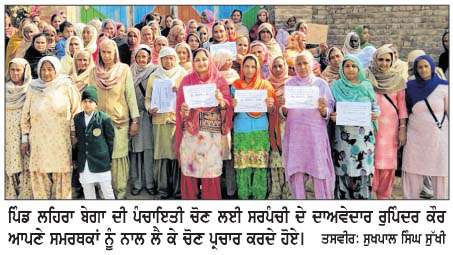 ਪਿੰਡ ਲਹਿਰਾ ਬੇਗਾ ਦੀ ਪੰਚਾਇਤੀ ਚੋਣ ਲਈ ਸਰਪੰਚੀ ਦੇ ਦਾਅਵੇਦਾਰ ਰੁਪਿੰਦਰ ਕੌਰ
ਆਪਣੇ ਸਮਰਥਕਾਂ ਨੂੰ ਨਾਲ ਲੈ ਕੇ ਚੋਣ ਪ੍ਰਚਾਰ ਕਰਦੇ ਹੋਏ। ਤਸਵੀਰ: ਸੁਖਪਾਲ ਸਿੰਘ ਸੁੱਖੀ